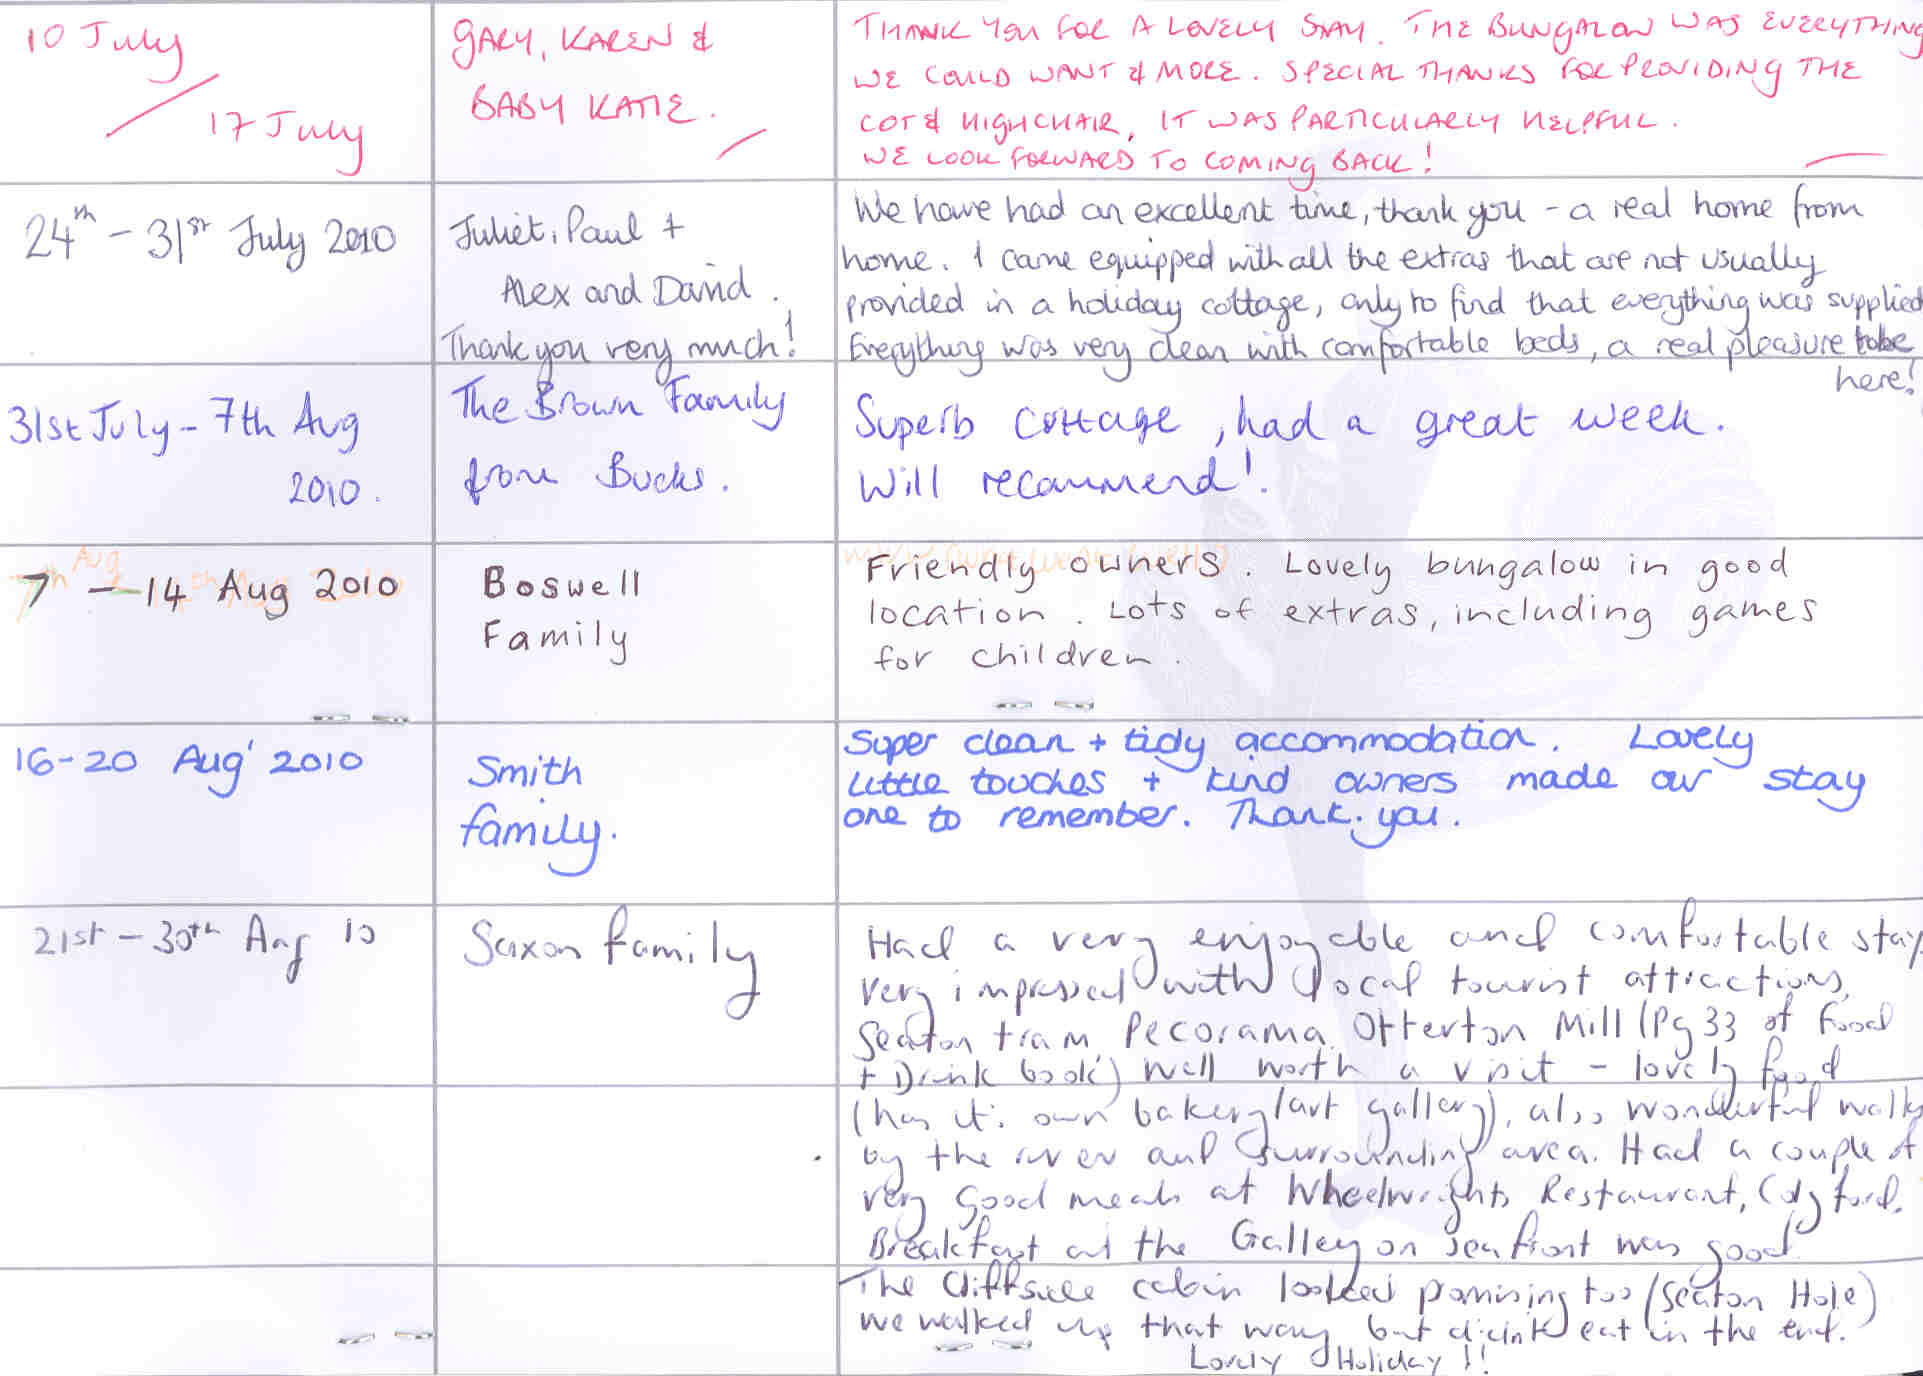 10 July
17 July
GARY, KAREN &
BABY KATIE.
THANK YOU FOR A LOVELY STAY. THE BUNGALOW WAS EVERYTHING
WE COULD WANT & MORE. SPECIAL THANKS FOR PROVIDING THE
COT & HIGHCHAIR, IT WAS PARTICULARLY HELPFUL.
WE LOOK FORWARD TO COMING BACK!
24th - 31st July 2010
Juliet, Paul +
Alex and David.
Thank you very much!
We have had an excellent time, thank you - a real home from
home. I came equipped with all the extras that are not usually
provided in a holiday cottage, only to find that everything was supplied
Everything was very clean with comfortable beds, a real pleasure to be
here!
31st July - 7th Aug
2010.
The Brown Family
from Bucks.
Superb cottage, had a great week.
Will recommend!
7 - 14 Aug 2010
Boswell
Family
Friendly owners. Lovely bungalow in good
location. Lots of extras, including games
for children.
16-20 Aug' 2010
Smith
family.
Super clean + tidy accommodation. Lovely
little touches + kind owners made our stay
one to remember. Thank.you.
21st - 30th Aug 10
Saxon family
Had a very enjoyable and comfortable stay
very impressed with local tourist attractions,
Seaton tram, Pecorama. Otterton Mill (Pg 33 of Food
+ Drink book) well worth a visit - lovely food
(has its own bakery/art gallery), also wonderful walks
by the river and surrounding area. Had a couple of
very good meals at Wheelwrights Restaurant, Colyford.
Breakfast at the Galley on seafront was good.
The Cliffside cabin looked promising too (Seaton Hole)
we walked up that way but didn't eat in the end.
Lovely Holiday!!